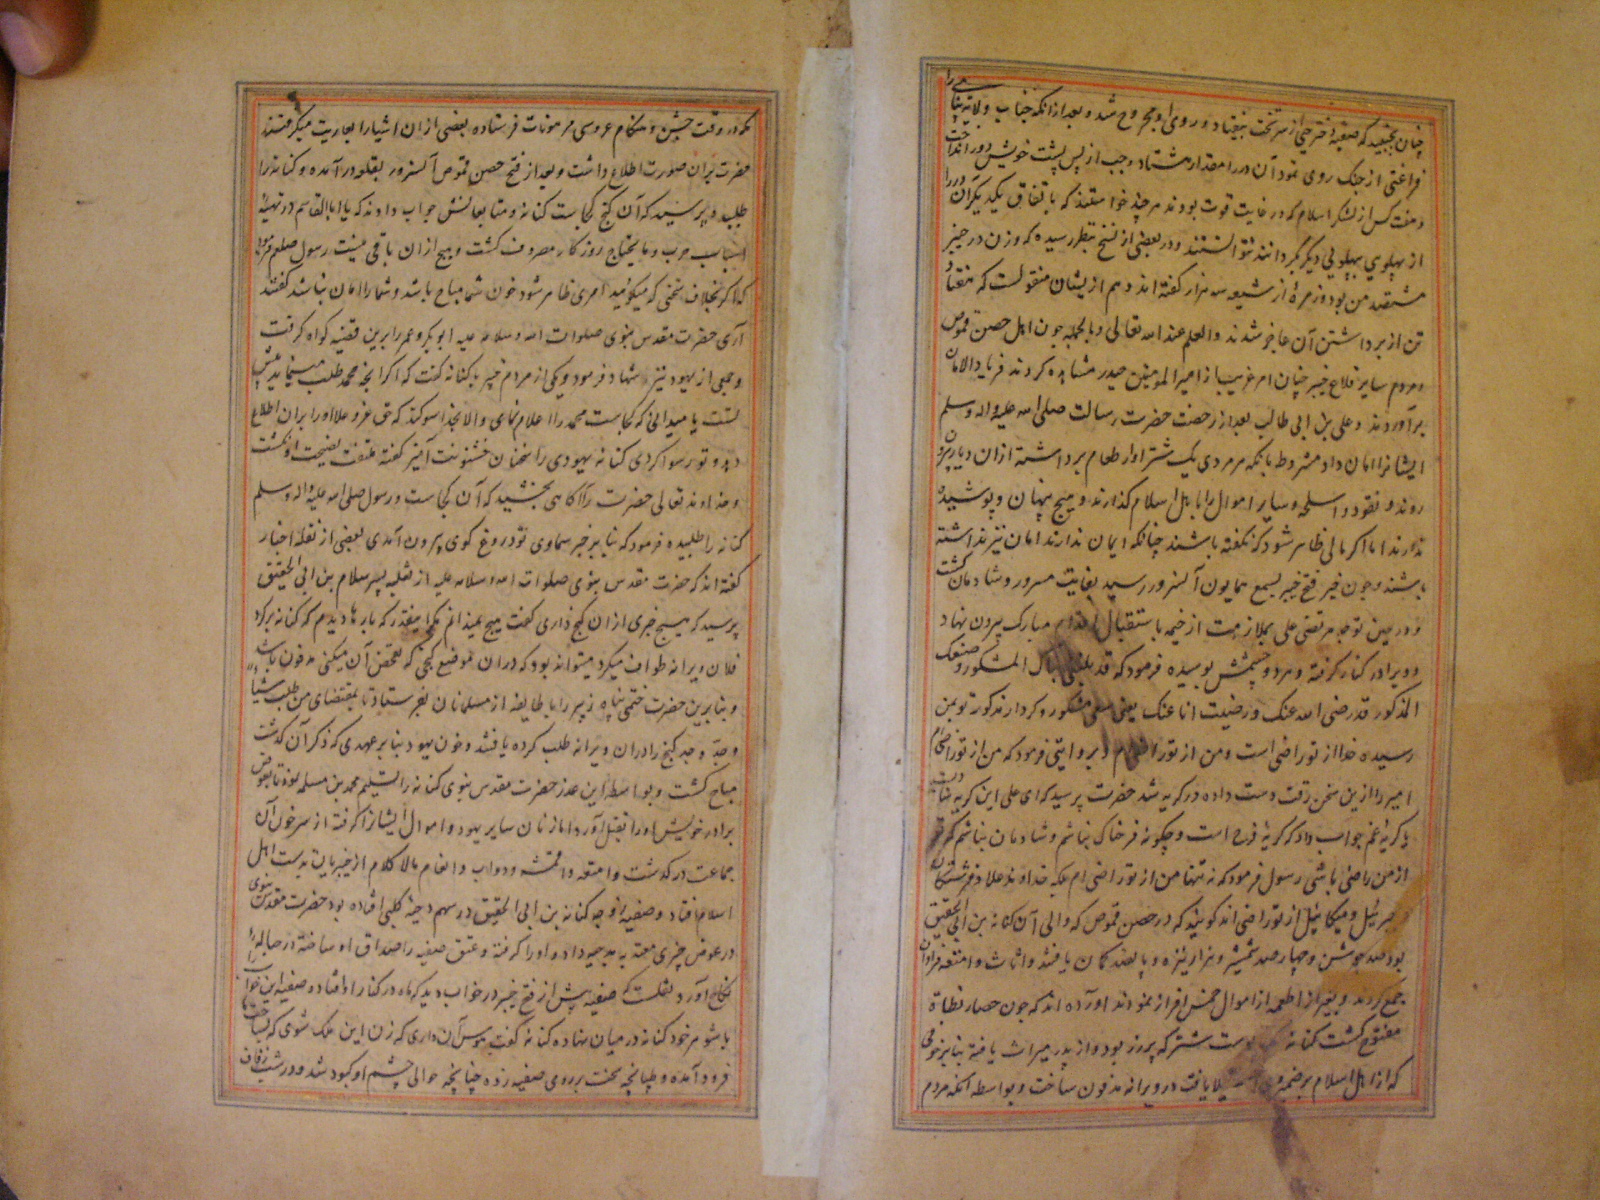 چنان بجنبید که صفیه دختر حیی از سر تخت بیفتاد و روی او مجروح شد و بعد از انکه جناب ولایت پناهی را
فراغتی از جنک روی نمود آن در را مقدار هشتاد وجب از پس پشت خویش دور انداخت
و هفت کس از لشکر اسلام که در غایت قوت بودند هر چند خواستند که باتفاق یکدیکر آن در را
از پهلوی بپهلویی دیکر بکردانند نتوانستند و در بعضی از نسخ بنظر رسیده که وزن در خیبر
من بود و زمرهٔ از شیعه سه هزار کفته اند و هم ازیشان منقولست که هفتاد
تن از برداشتن آن عاجز شدند والعلم عند الله تعالی و بالجمله چون اهل حصن قموص
و مردم سایر قلاع خیبر چنان امر غریب از امیر المومنین حیدر مشاهده کردند فریاد الامان
برآوردند و علی بن ابی طالب بعد از رخصت حضرت رسالت صلی الله علیه واله وسلم
ایشانرا امان داد مشروط بانکه هر مردی یک شتروار طعام برداشته ازان دیار بیرون
روند و نقود و اسلحه و سایر اموال را باهل اسلام کذارند و هیچ پنهان و پوشیده
ندارند اما اکر مالی ظاهر شود که نکفته باشند چنانکه ایمان ندارند امان نیز نداشته
باشند و چون خبر فتح خیبر بسمع همایون آنسرور رسید بغایت مسرور و شادمان کشت
و در حین توجه مرتضی علی بملازمت از خیمه باستقبال اقدام مبارک بیرون نهاد
و ویرا در کنار کرفته و هر دو چشمش بوسیده فرمود که قد بلغنی المشکور و صنعک
المذکور قد رضی الله عنک و رضیت انا عنک یعنی سعی مشکور و کردار مذکور تو بمن
رسیده خدا از تو راضی است و من از تو راضیم و بروایتی فرمود که من از تو راضی ام
امیر را ازین سخن رقت دست داده در کریه شد حضرت پرسید که ای علی این کریه شادیست
یا کریهٔ غم جواب داد که کریهٔ فرح است و چکونه فرحناک نباشم و شادمان نباشم که تو
از من راضی باشی رسول فرمود که نه تنها من از تو راضی ام بلکه خداوند علا و فرشتکان
و جبرئیل و میکائیل از تو راضی اند کویند که در حصن قموص که والی آن کنانه بن ابی الحقیق
بود صد جوشن و چهار صد شمشیر و هزار نیزه و پانصد کمان یافتند و اثاث و امتعه فراوان
جمع کردند و بغیر از اطعمه از اموال خمس افراز نمودند آورده اند که چون حصار نطاة
مفتوح کشت کنانه پوست شتر که پر زر بود و از پدر میراث یافته بنابر خوفی
که از اهل اسلام بر ضمیر استیلا یافت در ویرانه مدفون ساخت و بواسطه آنکه مردم
مکه در وقت جشن و هنکام عروسی مرهونات فرستاده بعضی ازان اشیا را بعاریت میکرفتند
حضرت بران صورت اطلاع داشت و بعد از فتح حصن قموص آنسرور بقلعه در آمده و کنانه را
طلبیده پرسید که آن کنج کجاست کنانه و متابعانش جواب دادند که یا ابا القاسم در تهیهٔ
اسباب حرب و مایحتاج روزکار مصروف کشت و هیچ ازان باقی نیست رسول صلعم فرمود
که اکر بخلاف سخنی که میکوئید امری ظاهر شود خون شما مباح باشد و شما را امان نباشد کفتند
آری حضرت مقدس نبوی صلوات الله و سلامه علیه ابو بکر و عمر را برین قضیه کواه کرفت
و جمعی از یهود نیز شهاد فرمود و یکی از مردم خیبر با کنانه کفت که اکر آنچه محمد طلب میکند پیش
تست یا میدانی که کجاست محمد را اعلام نمای والا بخدا سوکند که حق عز و علا او را بران اطلاع
دهد و تو رسوا کردی کنانه یهودی را سخنان خشونت آمیز کفته ملتفت نصیحت او نکشت
و خداوند تعالی حضرت را آکاهی بخشید که آن کجاست و رسول صلی الله علیه واله وسلم
کنانه را طلبیده فرمود که بنابر خبر سماوی تو دروغ کوی بیرون آمدی بعضی از نقلهٔ اخبار
کفته اند که حضرت مقدس نبوی صلوات الله و سلامه علیه از ثعلبه پسر سلام بن ابی الحقیق
پرسید که هیچ خبری ازان کنج داری کفت هیچ نمیدانم مکر اینقدر که بارها دیدم که کنانه بر کرد
فلان ویرانه طواف میکرد میتواند بود که دران موضع کنجی که تفحص آن میکنی مدفون باشد
و بنابرین حضرت ختمی پناه زبیر را با طایفه از مسلمانان بفرستاد تا بمقتضای من طلب شیئا
وجد وجد کنج را دران ویرانه طلب کرده یافتند و خون یهود بنابر عهدی که ذکر آن کذشت
مباح کشت و بواسطه این عذر حضرت مقدس نبوی کنانه را تسلیم محمد بن مسلمه نموده تا بعوض
برادر خویش او را بقتل آورد اما زنان سایر یهود و اموال ایشانرا کرفته از سر خون آن
جماعت در کذشت و امتعه و اقمشه و دواب و انعام مالا کلام از خیبریان بدست اهل
اسلام افتاد و صفیه زوجه کنانه بن ابی الحقیق در سهم دحیهٔ کلبی افتاده بود حضرت مقدس نبوی
در عوض چیزی معتد به بدحیه داد و او را کرفته و عتق صفیه را صداق او ساخته در حباله
نکاح آورد نقلست که صفیه پیش از فتح خیبر در خواب دید که ماه در کنار او افتاد و صفیه این خواب
با شوهر خود کنانه در میان نهاده کنانه کفت هوس آن داری که زن این ملک شوی که بساحت ما
فرود آمده و طپانچه سخت بر روی صفیه زده چنانچه حوالی چشم او کبود شد و در شب زفاف